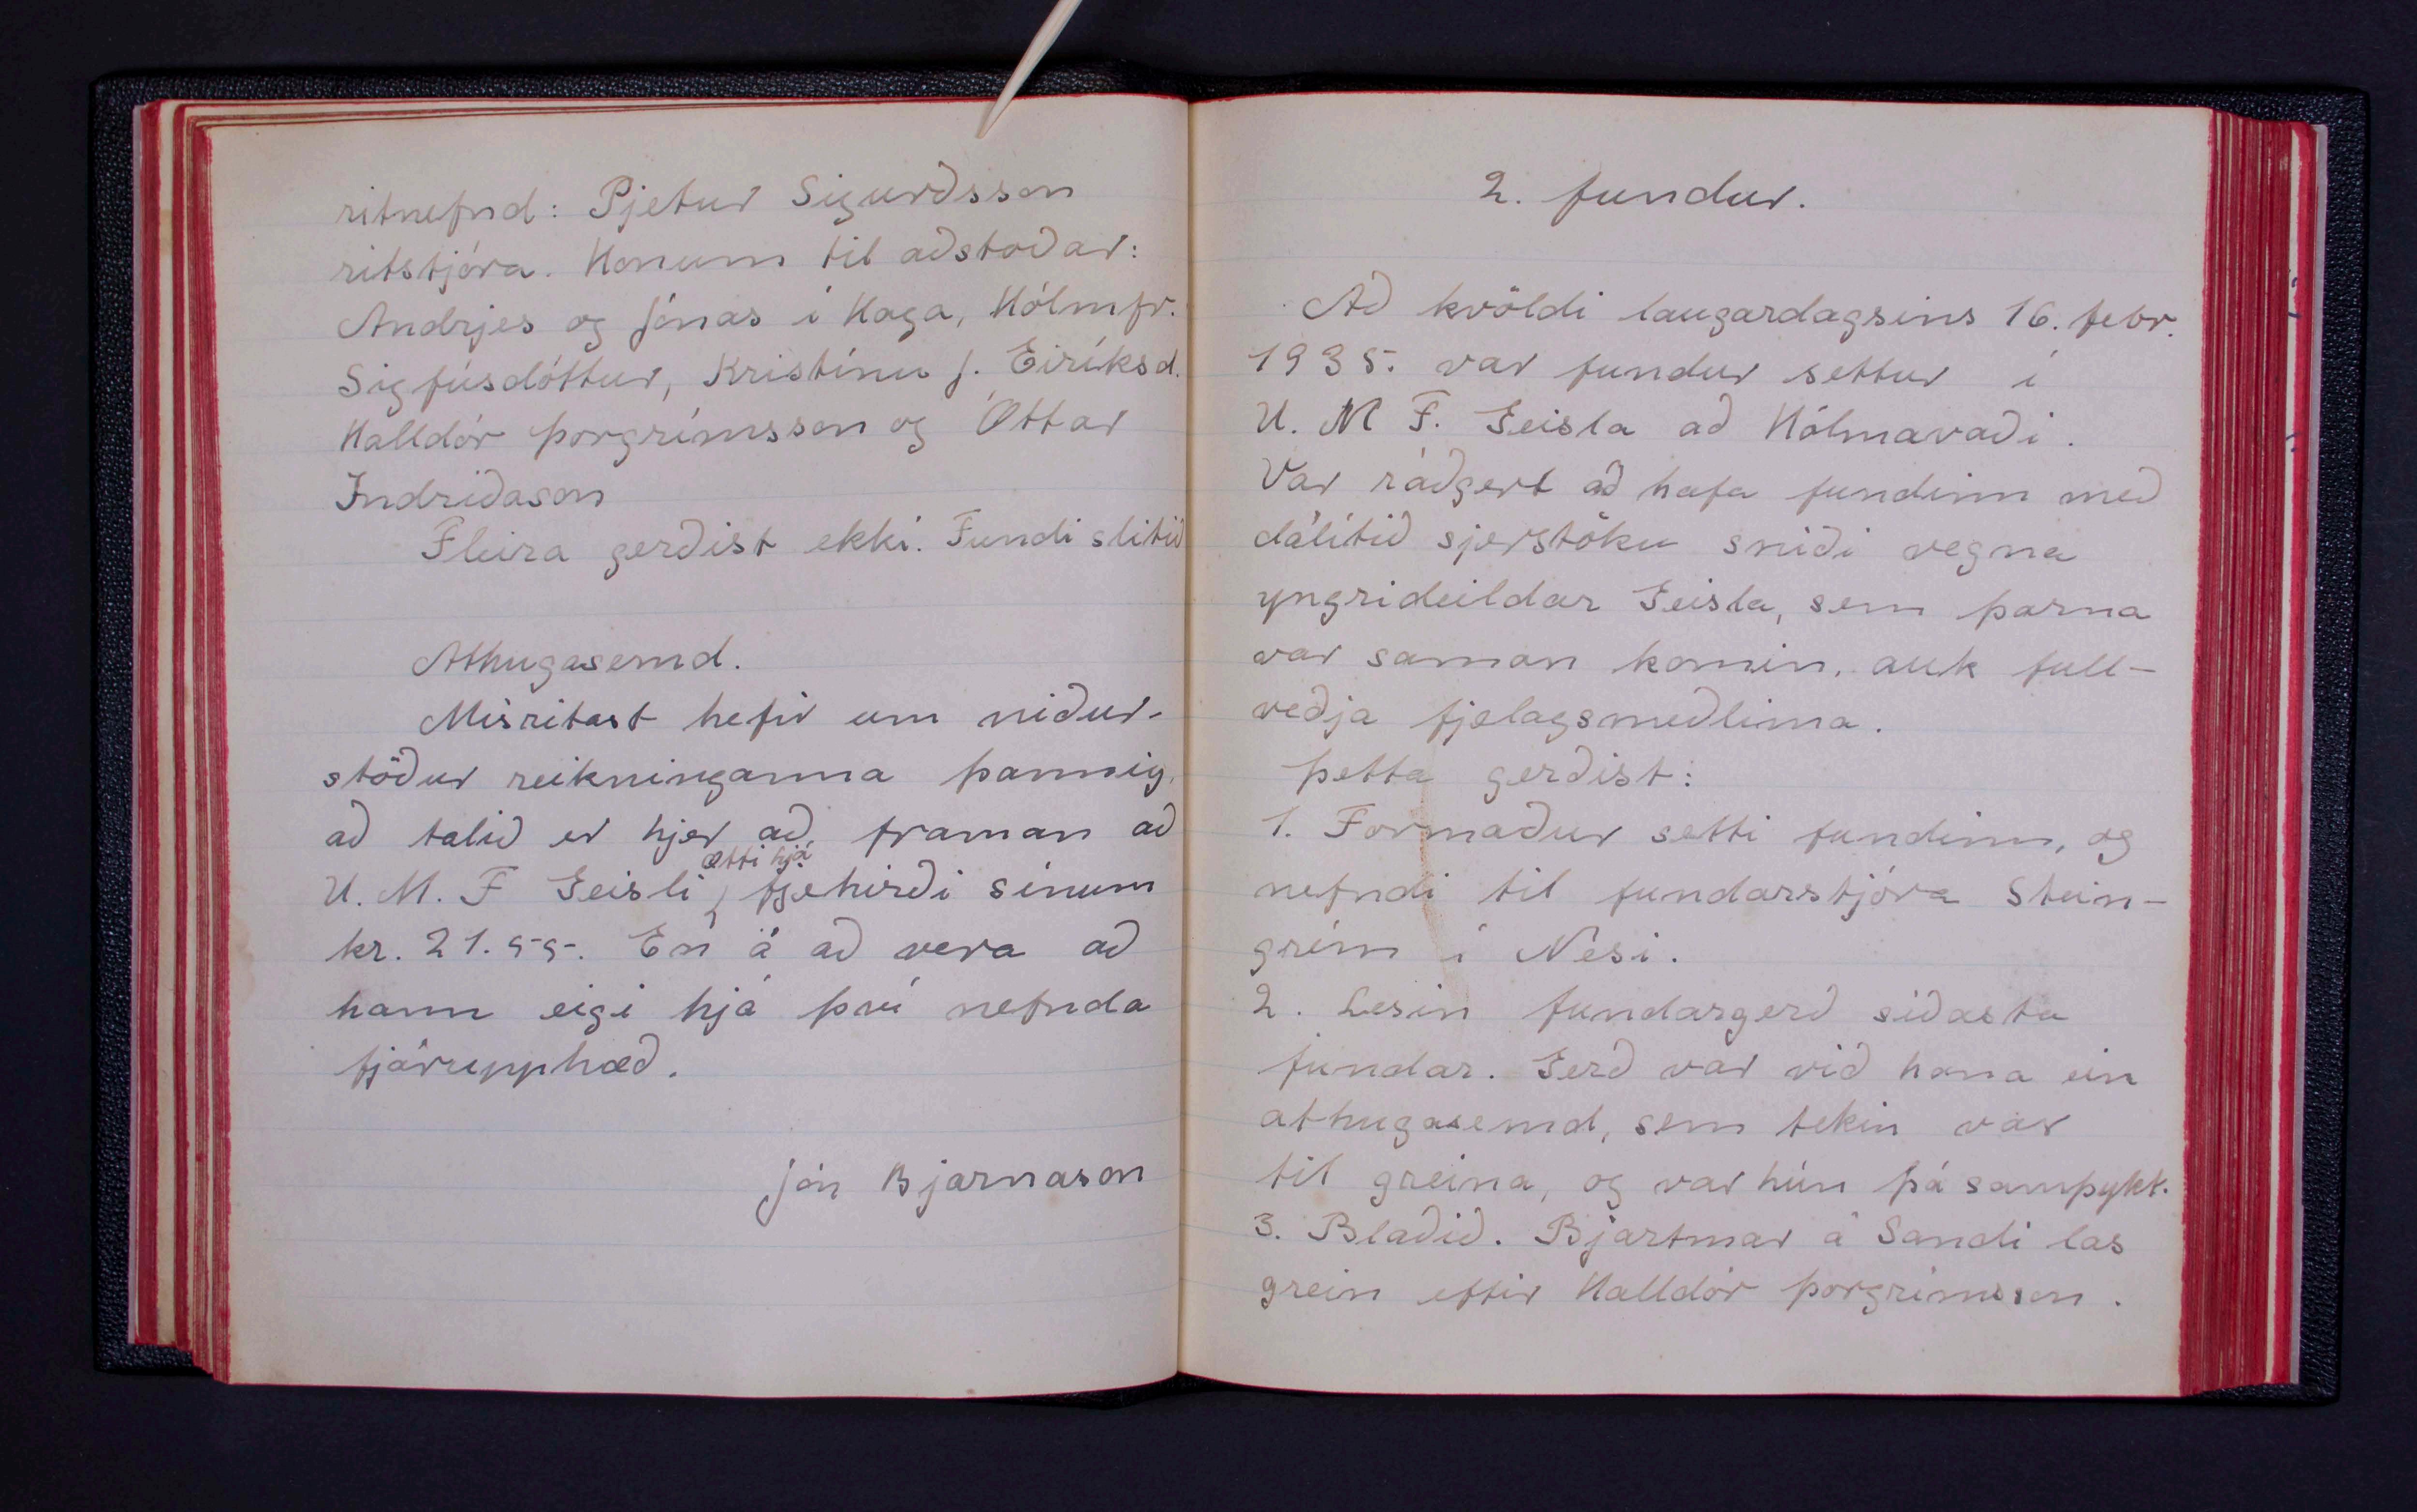 ritnefnd: Pjetur Sigurðsson
ritstjóra. Honum til aðstoðar:
Andrjes og Jónas í Haga, Hólmfr.
Sigfúsdóttur, Kristínu J. Eiríksd.
Halldór Þorgrímsson og Óttar
Indriðason
Fleira gerðist ekki. Fundi slitið
Athugasemd.
Misritast hefir um niður-
stöður reikninganna þannig,
að talið er hjer að framan að
U. M. F Geisli ætti hjá fjehirði sínum
kr. 21.55. En á að vera að
hann eigi hjá því nefnda
fjárupphæð.
Jón Bjarnason
2. fundur.
Að kvöldi laugardagsins 16. febr.
1935. var fundur settur í
U. M F. Geisla að Hólmavaði.
Var ráðgert að hafa fundinn með
dálítið sjerstöku sniði vegna
yngrideildar Geisla, sem þarna
var saman komin, auk full-
veðja fjelagsmeðlima.
Þetta gerðist:
1. Formaður setti fundinn, og
nefndi til fundarstjóra Stein-
grím í Nesi.
2. Lesin fundargerð síðasta
fundar. Gerð var við hana ein
athugasemd, sem tekin var
til greina, og var hún þá samþykt.
3. Blaðið. Bjartmar á Sandi las
grein eftir Halldór Þorgrímsson.